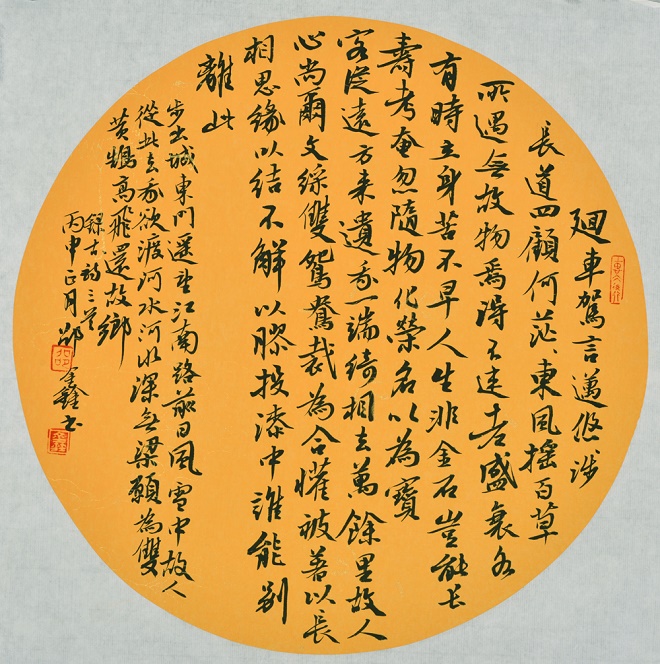 廻車駕言邁悠涉
長道四顧何茫、東風搖百草
所遇無故物焉得不速老盛衰各
有時立身苦不早人生非金石豈能長
壽考奄忽隨物化榮名以為寶
客從遠方來遺我一端綺相去萬餘里故人
心尚爾文綵雙鴛鴦裁為合懽被著以長
相思緣以結不解以膠投漆中誰能別
離此
步出城東門遥望江南路前日風雪中故人
從此去我欲渡河水河水深無梁願為雙
黄鵠高飛還故鄉
錄古詩三首
丙申正月邵金鑫书